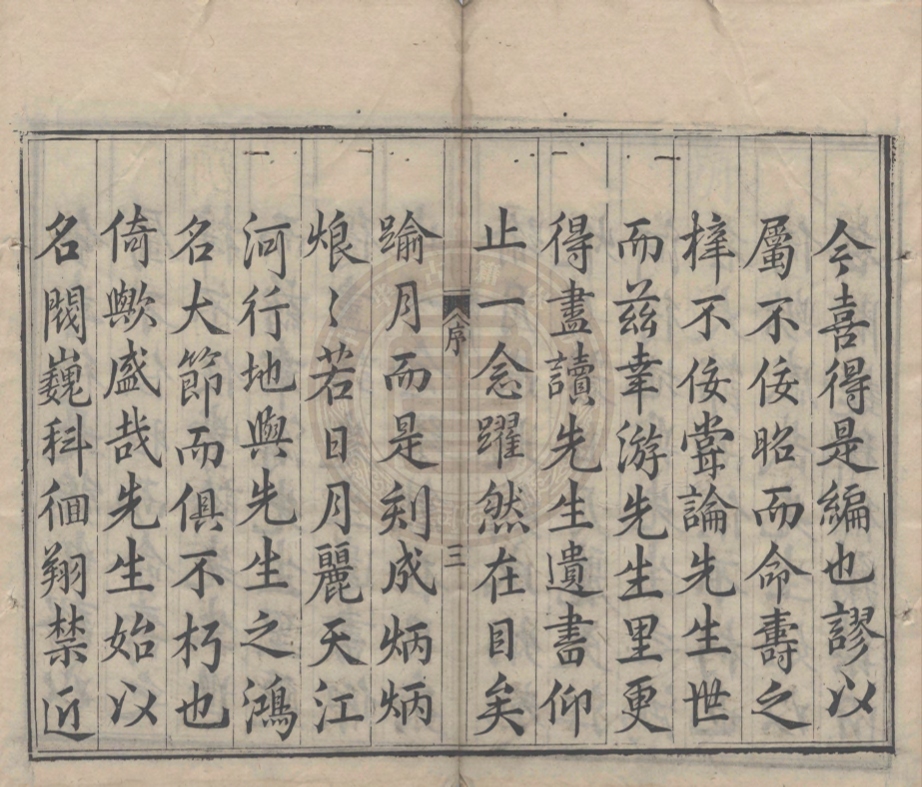 今喜得是編也謬以
屬不佞昭而命壽之
梓不佞甞論先生世
而茲幸游先生里更
得盡讀先生遺書仰
止一念躍然在目矣
序
三
踰月而是刻成炳炳
烺〻若日月麗天江
河行地與先生之鴻
名大節而俱不朽也
倚歟盛哉先生始以
名閥巍科徊翔禁近